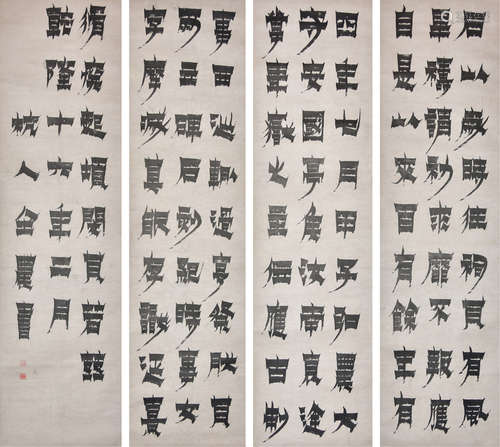 石以歲時往祠其有風
旱禱請祈求靡不報應
自是以來百有餘年有
四年七月甲子弘農太
守安國亭侯汝南袁逢
掌華嶽之主位應古制
事西巡輒過享祭然其
所立碑石刻紀時事文
字摩滅莫能存識延熹
循廢起頓閔其若茲
乾隆十六年二月
杭人金農書